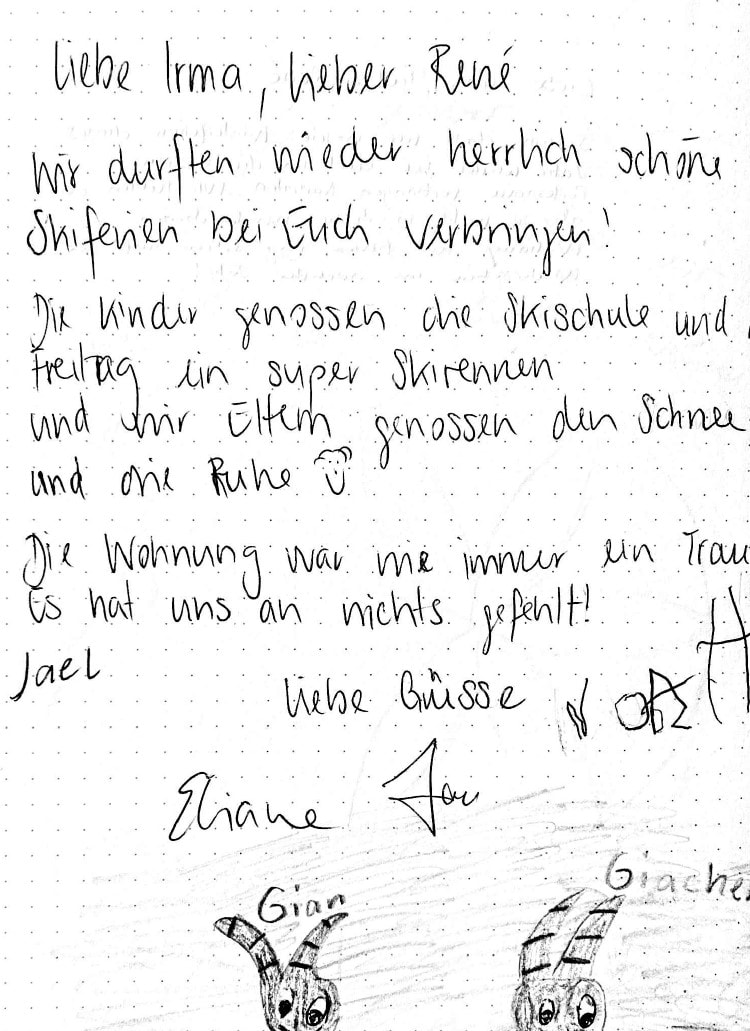 Liebe Irma, Lieber René
Wir durften wieder herrlich schöne
Skiferien bei Euch verbringen!
Die Kinder genossen die Skischule und
Freitag ein super Skirennen
und wir Eltern genossen den Schnee
und die Ruhe
Die Wohnung war wie immer ein Trau
Es hat uns an nichts gefehlt!
Jael
Liebe Grüsse
Eliane
Gian
Giache